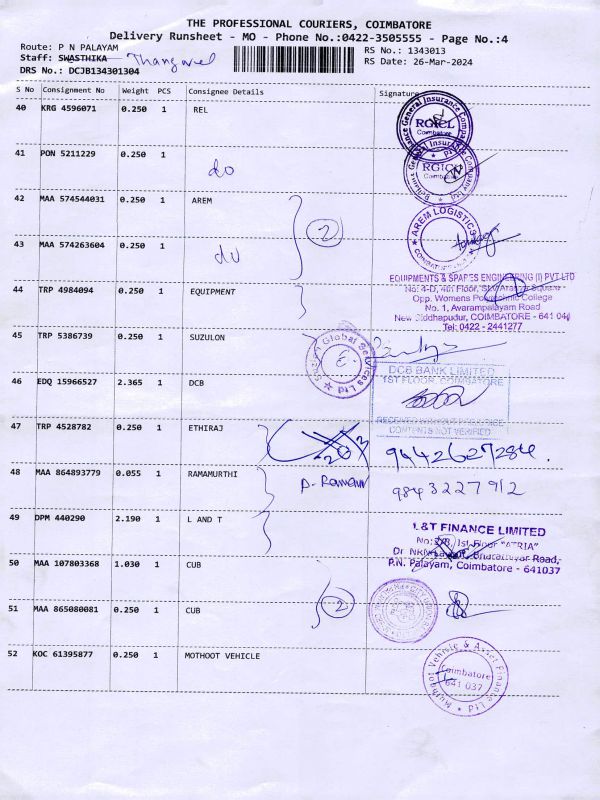 THE PROFESSIONAL COURIERS, COIMBATORE
Delivery Runsheet - MO - Phone No.:0422-3505555 - Page No.:4
Route: P N PALAYAM
RS No.: 1343013
Staff: SWASTHIKA Thangavel
RS Date: 26-Mar-2024
DRS No.: DCJB134301304
S No Consignment No Weight PCS Consignee Details Signature
40 KRG 4596071 0.250 1 REL
RGICL
Coimbatore
41 PON 5211229 0.250 1 do
RGICL
42 MAA 574544031 0.250 1 AREM
2
AREM LOGISTICS
COIMBATORE
43 MAA 574263604 0.250 1 do
44 TRP 4984094 0.250 1 EQUIPMENT
EQUIPMENTS & SPARES ENGINEERING (I) PVT LTD
No. 4-D, 4th Floor, Square
Opp. Womens Polytechnic College
No. 1, Avarampalayam Road
New Siddhapudur, COIMBATORE - 641 044
Tel: 0422 - 2441277
45 TRP 5386739 0.250 1 SUZULON
Global Services
46 EDQ 15966527 2.365 1 DCB
DCB BANK LIMITED
1ST FLOOR, COIMBATORE
CONTENTS NOT VERIFIED
47 TRP 4528782 0.250 1 ETHIRAJ
9442627284.
48 MAA 864893779 0.055 1 RAMAMURTHI
9843227912
49 DPM 440290 2.190 1 L AND T
L&T FINANCE LIMITED
1st Floor "ATRIA"
Bharathiyar Road,
P.N. Palayam, Coimbatore - 641037
50 MAA 107803368 1.030 1 CUB
2
51 MAA 865080081 0.250 1 CUB
52 KOC 61395877 0.250 1 MOTHOOT VEHICLE
Muthoot Vehicle & Asset Finance Ltd
Coimbatore
641 037